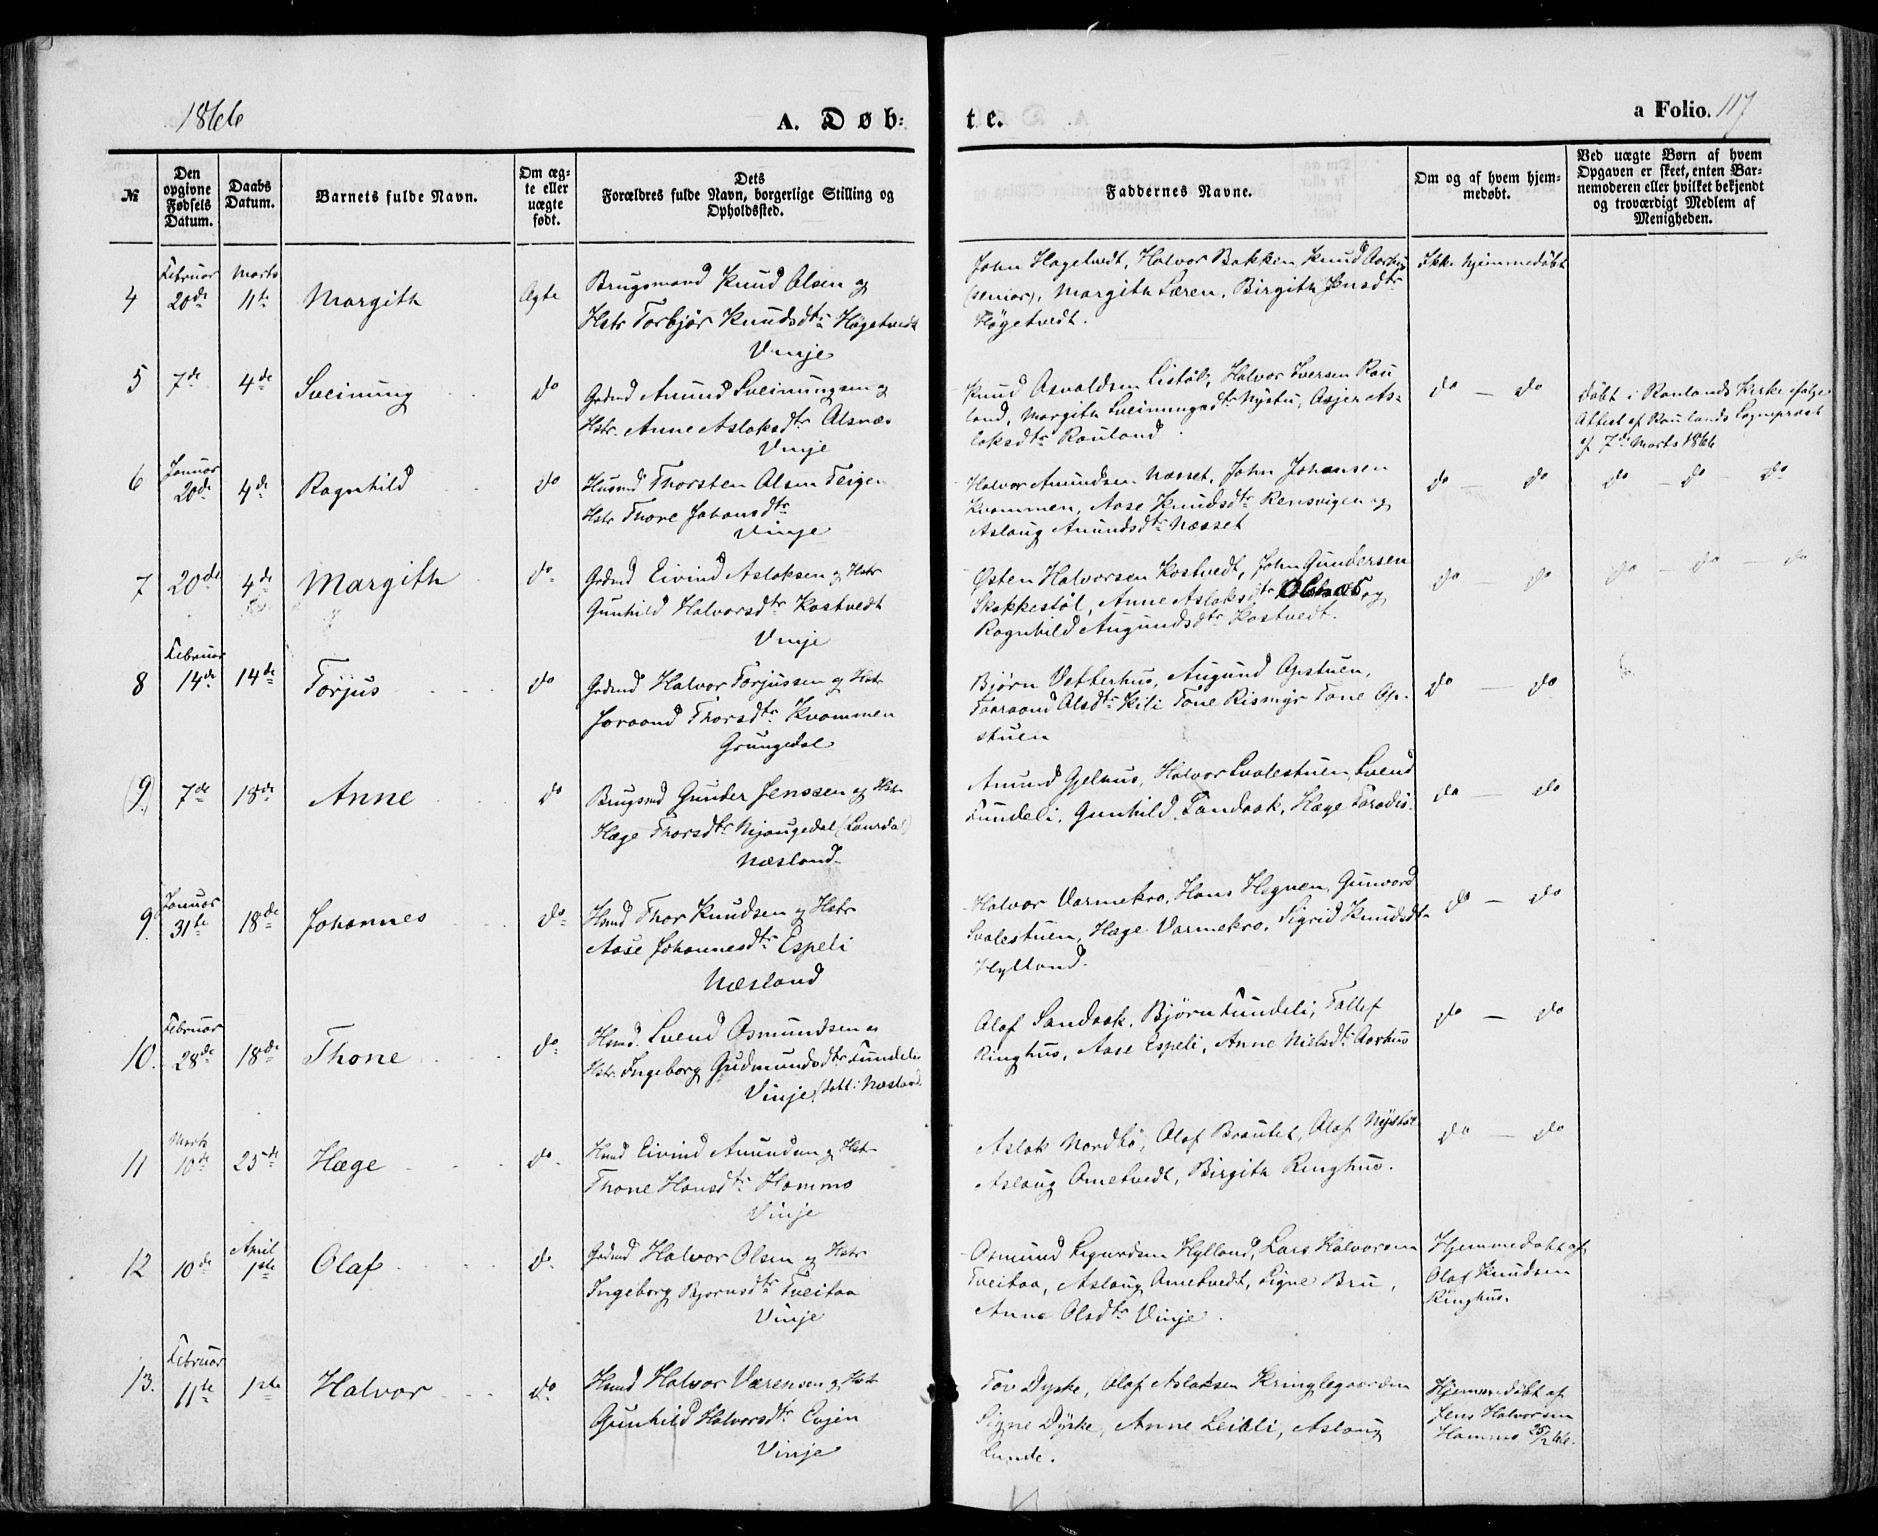 1866
A. Døb-
te.
a Folio. 117
№
Den opgivne Fødsels Datum.
Daabs Datum.
Barnets fulde Navn.
Om æg-
te eller
uægte
født.
Dets
Forældres fulde Navn, borgerlige Stilling og
Opholdssted.
Faddernes Navne.
Om og af hvem hjem-
medøbt.
Ved uægte Børn af hvem
Opgaven er skeet, enten Bar-
nemoderen eller hvilket bekjendt
og troværdigt Medlem af
Menigheden.
4 Februar 20de Marts 11te Margith Ægte
Brugsmand Knud Olsen og
Hstr Torbjør Knudsdtr Høgetvedt
Vinje
John Høgetvedt, Halvor Bakken Knud Aarhus
(senior), Margith Særen, Birgith Jensdtr
Høgetvedt.
Ikke hjemmedøbt
5 7de 4de Sveinung do
Grdmd Amund Sveinungsen og
Hstr. Anne Aslaksdtr Olsnæs
Vinje
Knud Osvaldsen Listøl, Halvor Iversen Rau
land, Margith Sveinungsdtr Nystu, Asjer As-
laksdtr Rauland.
do — do
Døbt i Raulands Kirke ifølge
Attest af Raulands Sognepræst
af 7de Marts 1866
6 Januar 20de 4de Ragnhild do
Husmd Thorsten Olsen Teigen
Hstr Thore Johansdtr
Vinje
Halvor Amundsen Næsset, John Johansen
Kvammen, Aase Knudsdtr Rensvigen og
Aslaug Amundsdtr Næsset
do — do
do — do — do
7 20de 4de Margith do
Grdmd Eivind Aslaksen og Hstr
Gunhild Halvorsdtr Kostvedt
Vinje
Østen Halvorsen Kostvedt, John Gundersen
Skakkestøl, Anne Aslaksdtr Olsnæs og
Ragnhild Augundsdtr Kostvedt.
do — do
do — do — do
8 Februar 14de 14de Torjus do
Grdmd Halvor Torjussen og Hstr
Joraand Thorsdtr Kvammen
Grungedal
Bjørn Vetterhus, Augund Opstuen,
Taaraand Olsdtr Kili Tone Rismyr Tone Op-
stuen
do — do
(9.) 7de 18de Anne do
Brugsmd Gunder Jenssen og Hstr
Hæge Thorsdtr Mjaugedal (Laurdal)
Næsland
Amund Gjelhus, Halvor Svalestuen Svend
Fundeli, Gunhild Sandaak, Hæge Paradis.
do — do
9. Januar 31te 18de Johannes do
Hsmd Thor Knudsen og Hstr
Aase Johannesdtr Espeli
Næsland
Halvor Varmekro, Hans Hegnen, Gunvord
Svalestuen, Hæge Varmekro, Sigrid Knudsdt
Hylland.
do — do
10. Februar 28de 18de Thone do
Hsmd. Svend Osmundsen og
Hstr. Ingeborg Gudmundsdtr Fundeli
Vinje (døbt i Næsland)
Olaf Sandaak, Bjørn Fundeli, Tallef
Ringhus, Aase Espeli, Anne Nielsdtr Aarhus
do — do
11 Marts 10de 25de Hæge do
Hsmd Eivind Amundsen og Hstr
Thone Hansdtr Hommo
Vinje
Aslak Nordbø, Olaf Brautet, Olaf Nystøl
Aslaug Ometvedt, Birgith Ringhus.
do — do
12 10de April 1ste Olaf do
Grdmd Halvor Olsen og Hstr
Ingeborg Bjørnsdtr Tveitaa
Vinje
Osmund Sigurdsen Hylland, Lars Halvorsen
Tveitaa, Aslaug Ometvedt, Signe Bru,
Anne Olsdtr Vinje.
Hjemmedøbt af
Olaf Knudsen
Ringhus.
13. Februar 11te 1ste Halvor do
Hsmd Halvor Værensen og Hstr
Gunhild Halvorsdtr Evjen
Vinje
Tov Dyrke, Olaf Aslaksen Kringlegaarden
Signe Dyrke, Anne Leikli, Aslaug
Lunde.
Hjemmedøbt af
Jens Halvorsen
Hommo 25/2 66.